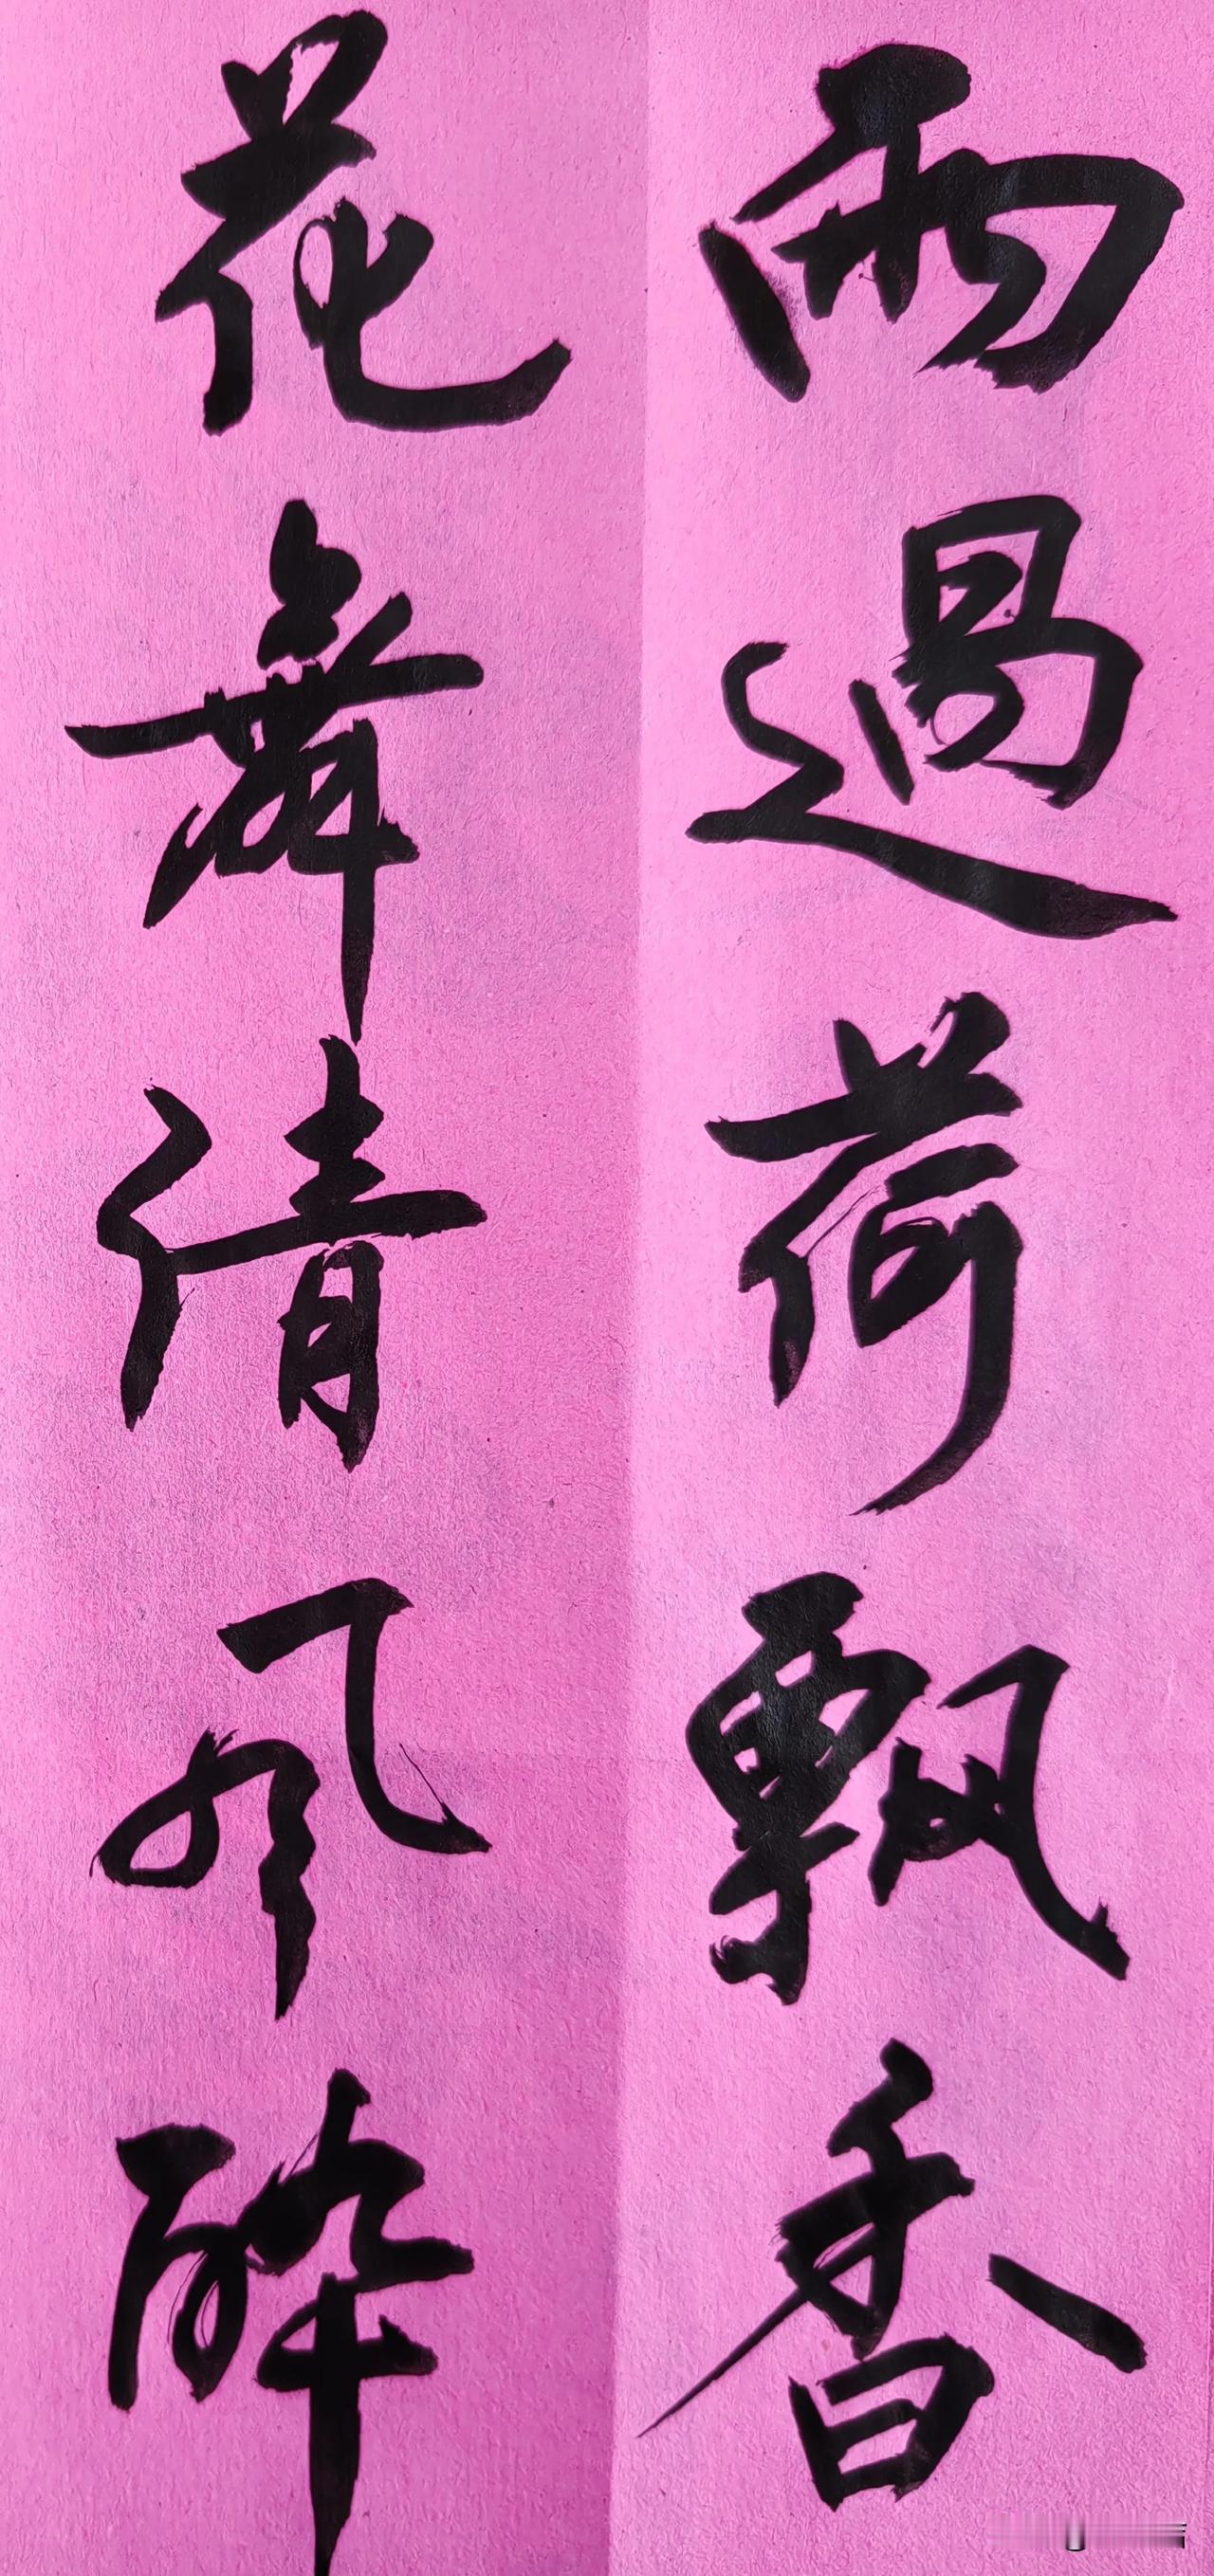 雨過荷飄香
花舞清風醉